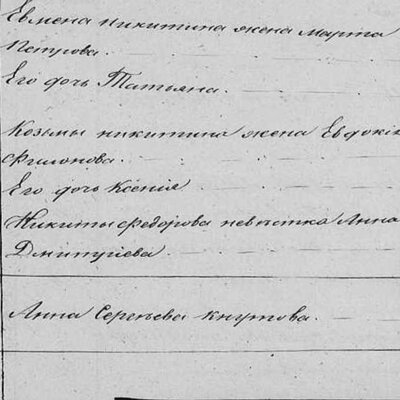 Евмена Никитина жена Марта
Петрова.
Его дочь Татьяна.
Козьмы Никитина жена Евдокія
Филонова.
Его дочь Ксенія
Никиты Федорова невѣстка Анна
Дмитріева.
Анна Сергѣева Кнутова.